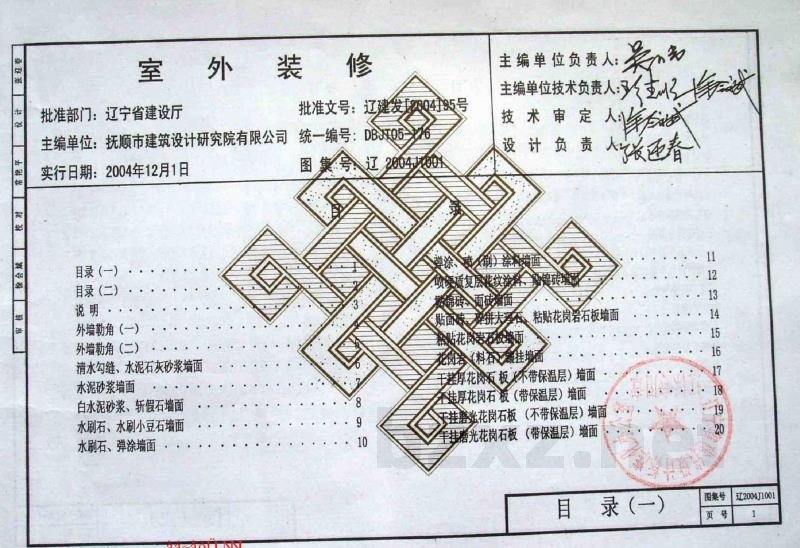 室外装修
批准部门：辽宁省建设厅
主编单位：抚顺市建筑设计研究院有限公司
实行日期：2004年12月1日
批准文号：辽建发[2004]95号
统一编号：DBJT05-176
图集号：辽 2004J1001
主编单位负责人：
主编单位技术负责人：
技术审定人：
设计负责人：张迎春
目录
目录（一）1
目录（二）2
说明3
外墙勒角（一）4
外墙勒角（二）5
清水勾缝、水泥石灰砂浆墙面6
水泥砂浆墙面7
白水泥砂浆、斩假石墙面8
水刷石、水刷小豆石墙面9
水刷石、弹涂墙面10
弹涂、喷（刷）涂料墙面11
墙面12
面砖墙面13
粘贴花岗岩石板墙面14
粘贴花岗岩石板墙面15
花岗岩（料石）挂墙面16
干挂厚花岗石板（不带保温层）墙面17
干挂厚花岗石板（带保温层）墙面18
干挂磨光花岗石板（不带保温层）墙面19
干挂磨光花岗石板（带保温层）墙面20
目录(一)
图集号 辽2004J1001
页号 1
设计 张迎春
校对
审核
bzxz.net